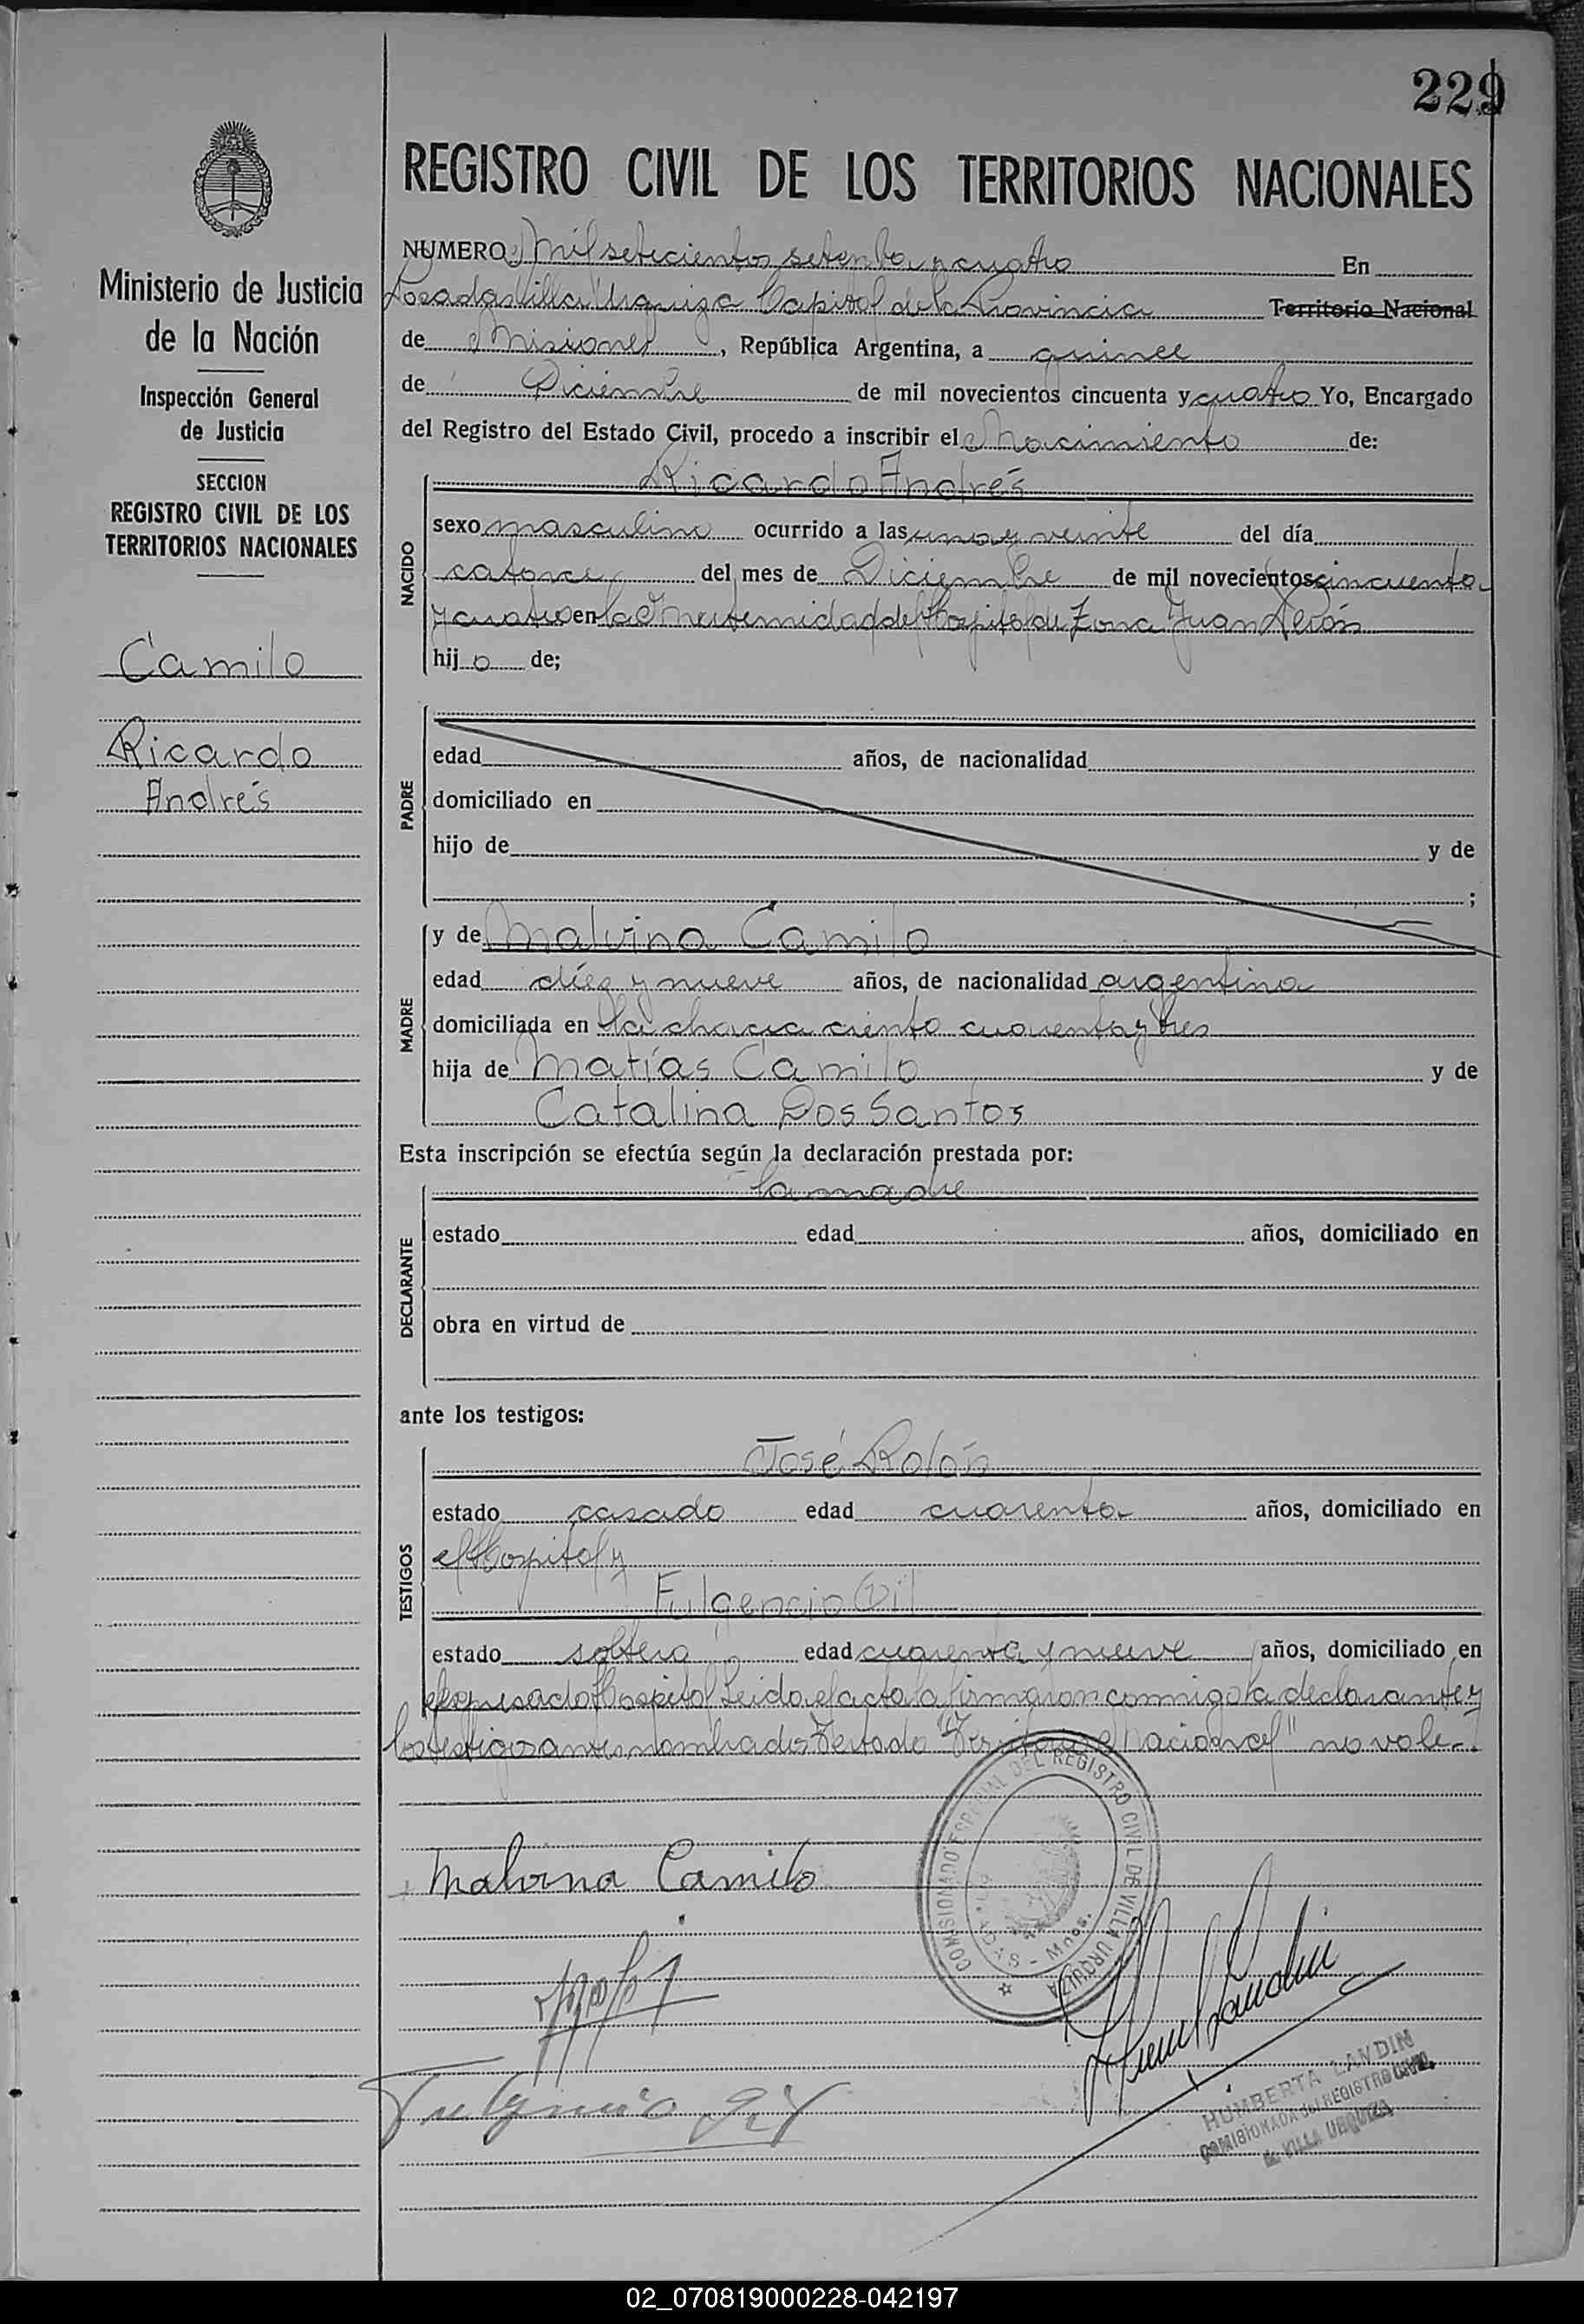 229
REGISTRO CIVIL DE LOS TERRITORIOS NACIONALES
Ministerio de Justicia
de la Nación
Inspección General
de Justicia
SECCION
REGISTRO CIVIL DE LOS
TERRITORIOS NACIONALES
Camilo
Ricardo
Andrés
NUMERO Mil setecientos setenta y cuatro En
Posadas Villa Urquiza Capital de la Provincia Territorio Nacional
de Misiones, República Argentina, a quince
de Diciembre de mil novecientos cincuenta y cuatro Yo, Encargado
del Registro del Estado Civil, procedo a inscribir el Nacimiento de:
NACIDO
Ricardo Andrés
sexo masculino ocurrido a las una y veinte del día
catorce del mes de Diciembre de mil novecientos cincuenta
y cuatro en la Maternidad del Hospital de Zona Juan Perón
hijo de;
PADRE
edad años, de nacionalidad
domiciliado en
hijo de y de
;
MADRE
y de Malvina Camilo
edad diez y nueve años, de nacionalidad argentina
domiciliada en la chacra ciento cuarenta y tres
hija de Matías Camilo y de
Catalina Dos Santos
Esta inscripción se efectúa según la declaración prestada por:
DECLARANTE
la madre
estado edad años, domiciliado en
obra en virtud de
ante los testigos:
TESTIGOS
José Rolón
estado casado edad cuarenta años, domiciliado en
el Hospital y
Fulgencio Gil
estado soltero edad cuarenta y nueve años, domiciliado en
el expresado Hospital Leida el acta la firmaron conmigo la declarante y
los testigos antes nombrados Testado "Territorio Nacional" no vale.-
COMISIONADO ESPECIAL DEL REGISTRO CIVIL DE VILLA URQUIZA
Mnes.
Malvina Camilo
Fulgencio Gil
HUMBERTA LANDIN
COMISIONADA del REGISTRO CIVIL
de VILLA URQUIZA
02_070819000228-042197